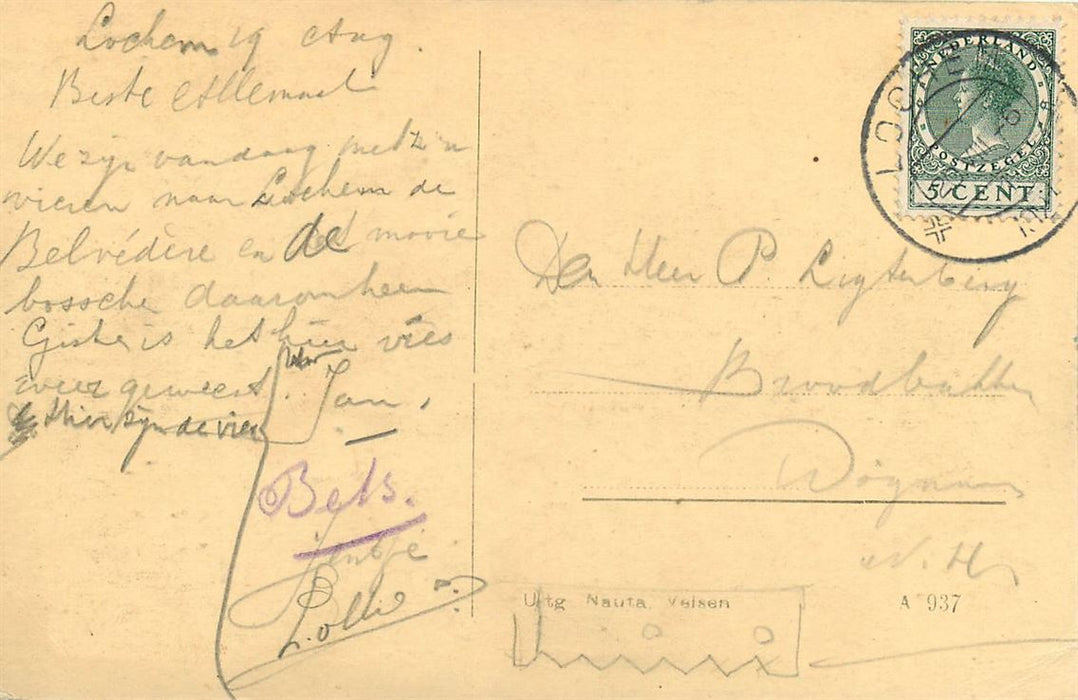 Lochem 19 Aug.
Beste Allemaal
We zyn vandaag met z'n
vieren naar Lochem de
Belvédère en de mooie
bossche daaromheen
Giste is het hier vies
weer geweest.
Hier zyn de vier
Jan,
Bets.
Jentje
Lollie
NEDERLAND
POSTZEGEL
5 CENT
LOCHEM
Den Heer P. Ligtenberg
Broodbakker
Wognum
N.H.
Uitg Nauta, Velsen
A 937